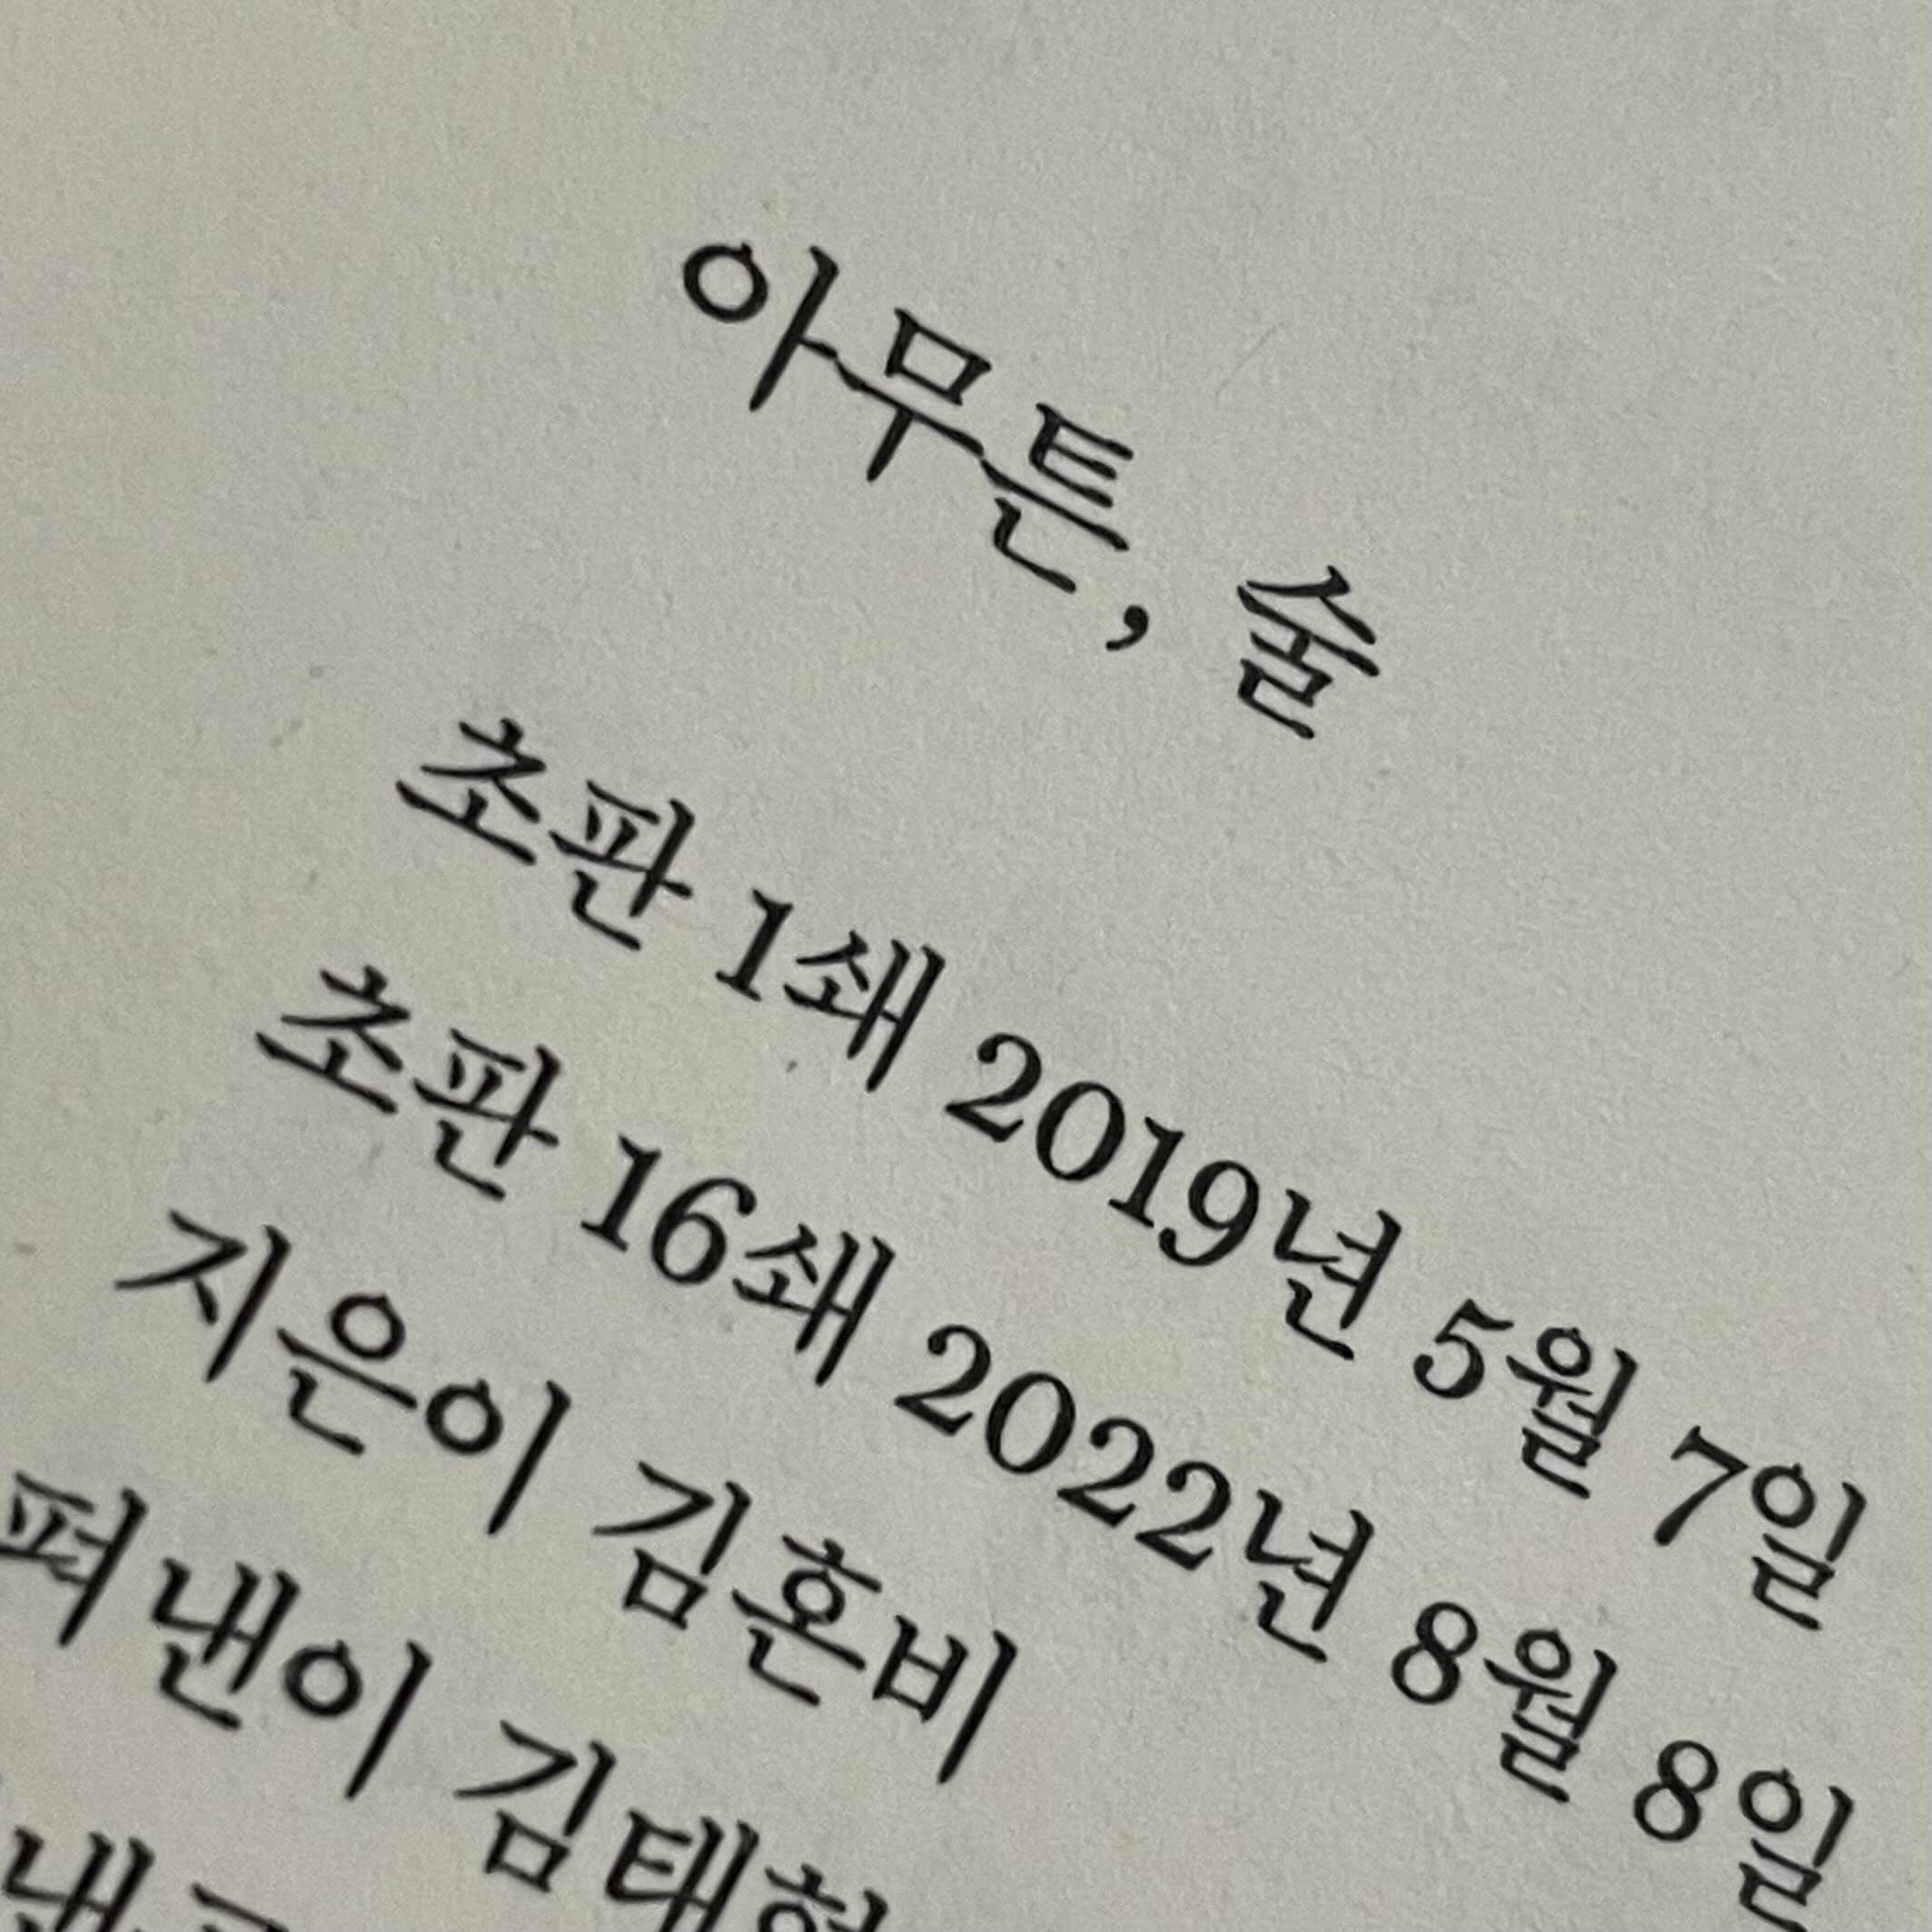 아무튼, 술
초판 1쇄 2019년 5월 7일
초판 16쇄 2022년 8월 8일
지은이 김혼비
펴낸이